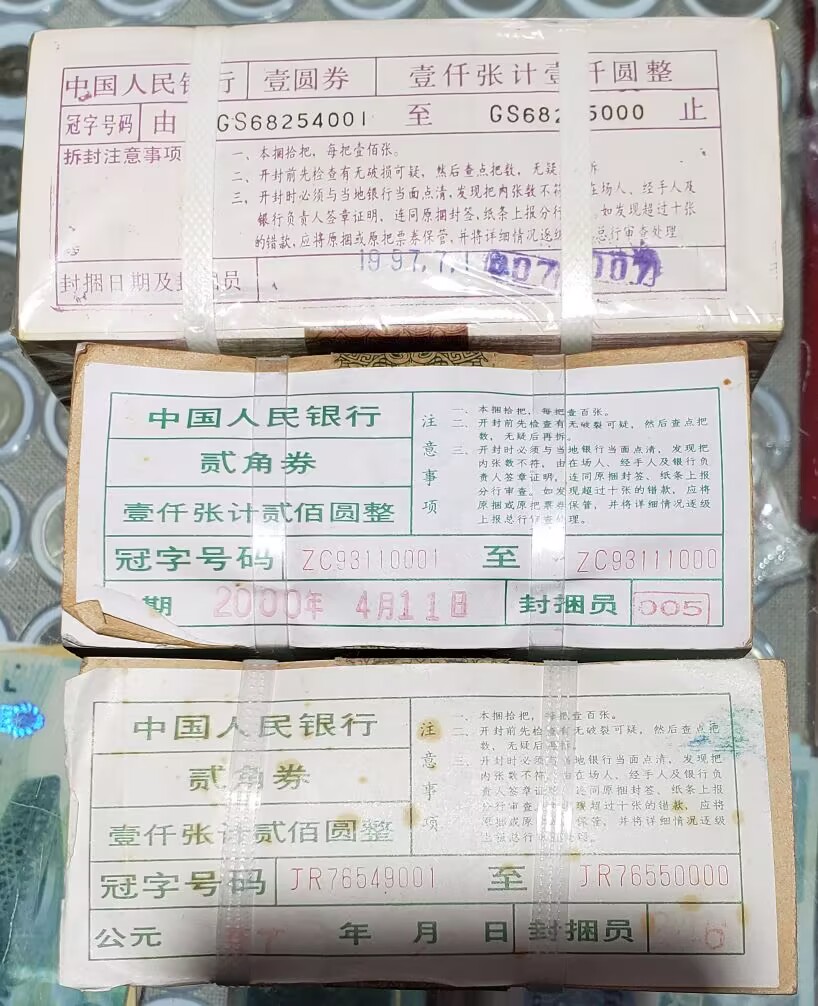 中国人民银行 壹圆券 壹仟张计壹仟圆整
冠字号码 由 GS68254001 至 GS68255000 止
拆封注意事项
一、本捆拾把，每把壹佰张。
二、开封前先检查有无破损可疑，然后查点把数，无疑 拆
三、开封时必须与当地银行当面点清，发现把内张数不符 在场人、经手人及
银行负责人签章证明，连同原捆封签、纸条上报分行 如发现超过十张
的错款，应将原捆或原把票券保管，并将详细情况逐级 总行审查处理
封捆日期及封捆员 1997.7.1 007 007
中国人民银行
贰角券
壹仟张计贰佰圆整
注意事项
一、本捆拾把，每把壹百张。
二、开封前先检查有无破裂可疑，然后查点把
数，无疑后再拆。
三、开封时必须与当地银行当面点清，发现把
内张数不符，由在场人、经手人及银行负
责人签章证明，连同原捆封签、纸条上报
分行审查。如发现超过十张的错款，应将
原捆或原把票券保管，并将详细情况逐级
上报总行审查处理。
冠字号码 ZC93110001 至 ZC93111000
期 2000年 4月11日 封捆员 005
中国人民银行
贰角券
壹仟张计贰佰圆整
注意事项
一、本捆拾把，每把壹百张。
二、开封前先检查有无破裂可疑，然后查点把
数，无疑后再拆。
三、开封时必须与当地银行当面点清，发现把
内张数不符，由在场人、经手人及银行负
责人签章证明，连同原捆封签、纸条上报
分行审查。如发现超过十张的错款，应将
原捆或原把票券保管，并将详细情况逐级
上报总行审查处理。
冠字号码 JR76549001 至 JR76550000
公元 年 月 日 封捆员